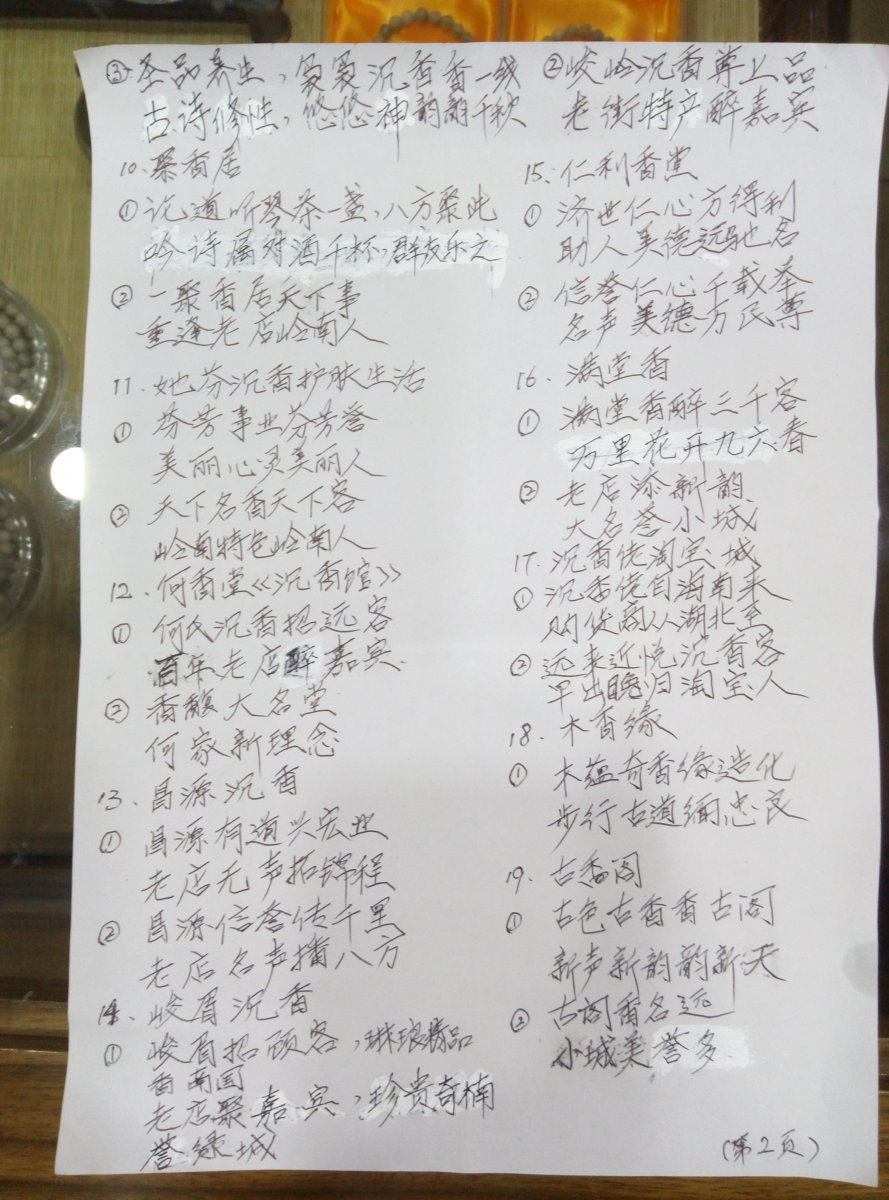 ③圣品养生，袅袅沉香香一线
古诗修性，悠悠神韵韵千秋
10、聚香居
① 论道听琴茶一盏，八方聚此
吟诗属对酒千杯，群友乐之
② 一聚香居天下事
重逢老店岭南人
11. 她芬沉香护肤生活
① 芬芳事业芬芳誉
美丽心灵美丽人
② 天下名香天下客
岭南特色岭南人
12. 何香堂《沉香馆》
① 何氏沉香招远客
百年老店醉嘉宾
② 香馥大名堂
何家新理念
13、昌源沉香
① 昌源有道兴宏业
老店无声拓锦程
② 昌源信誉传千里
老店名声播八方
14. 峻眉沉香
① 峻眉招顾客，琳琅精品
香南国
老店聚嘉宾，珍贵奇楠
誉绿城
② 峻岭沉香尊上品
老街特产醉嘉宾
15. 仁利香堂
① 济世仁心方得利
助人美德远驰名
② 信誉仁心千载奉
名声美德万民尊
16. 满堂香
① 满堂香醉三千客
万里花开九六春
② 老店添新韵
大名誉小城
17. 沉香佬淘宝城
① 沉香佬自海南来
购货商从湖北至
② 远来近悦沉香客
早出晚归淘宝人
18. 木香缘
① 木蕴奇香缘造化
步行古道缅忠良
19. 古香阁
① 古色古香香古阁
新声新韵韵新天
② 古阁香名远
小城美誉多
（第2页）